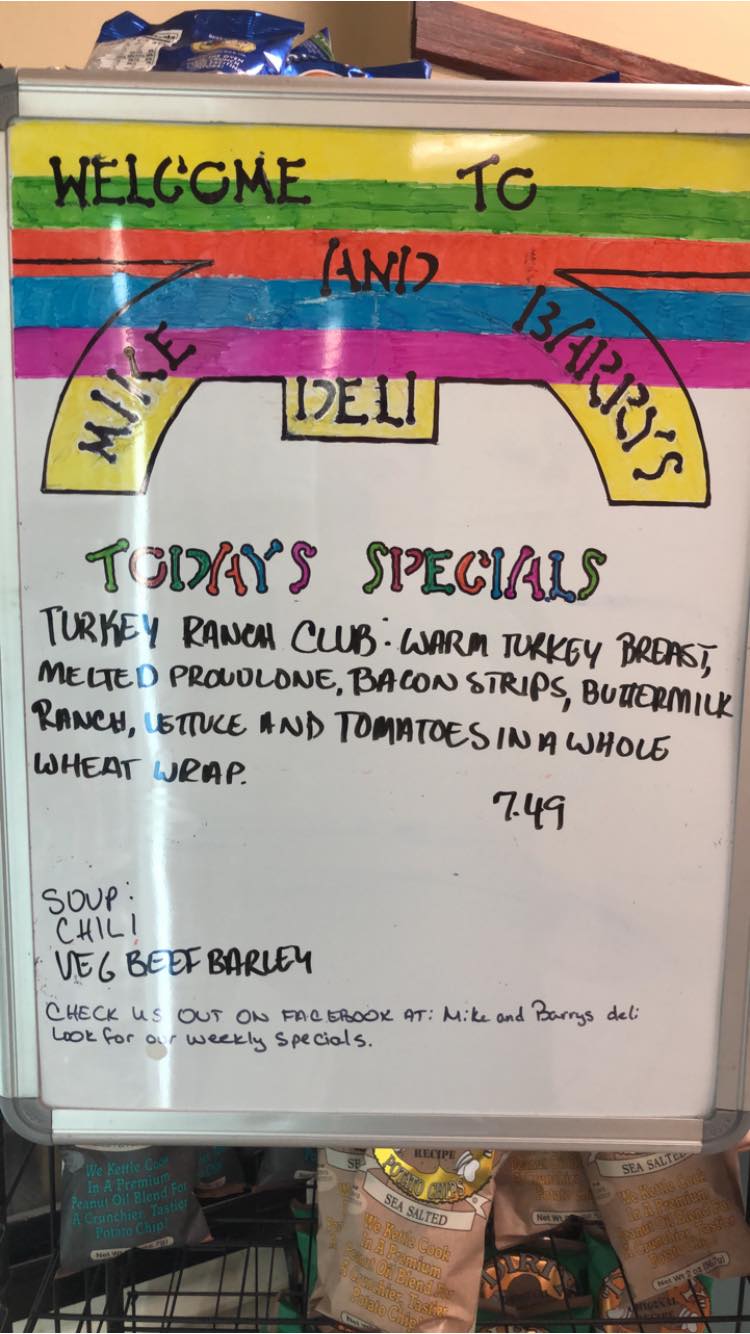 WELCOME TO
MIKE AND BARRY'S
DELI
TODAY'S SPECIALS
TURKEY RANCH CLUB: WARM TURKEY BREAST,
MELTED PROVULONE, BACON STRIPS, BUTTERMILK
RANCH, LETTUCE AND TOMATOES IN A WHOLE
WHEAT WRAP.
7.49
SOUP:
CHILI
VEG BEEF BARLEY
CHECK US OUT ON FACEBOOK AT: Mike and Barrys deli
Look for our weekly specials.
We Kettle Cook
In A Premium
Peanut Oil Blend For
A Crunchier, Tastier
Potato Chip!
Net W
RECIPE
POTATO CHIPS
SEA SALTED
We Kettle Cook
In A Premium
Peanut Oil Blend For
A Crunchier, Tastier
Potato Chip
SEA SALTED
Net Wt 2 oz
DIRTY
ORIGINAL